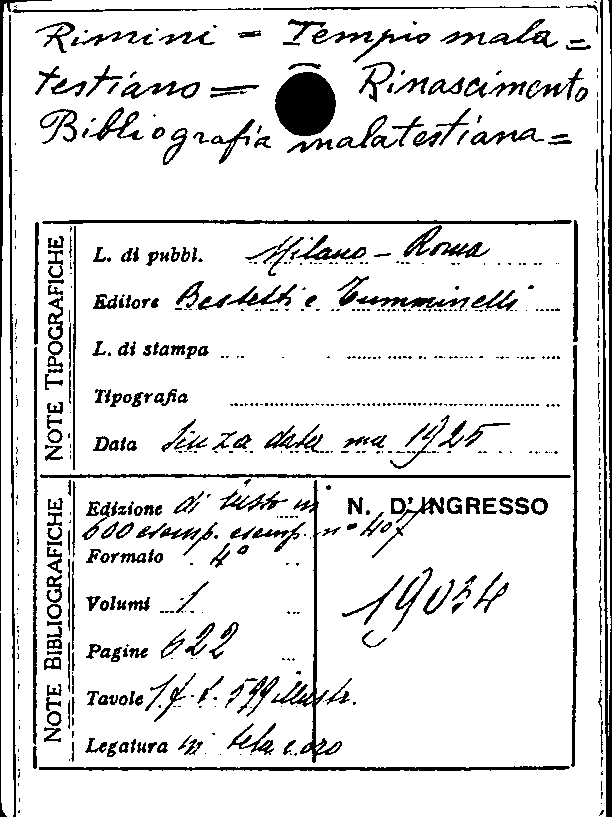 Rimini = Tempio mala=
testiano = Rinascimento
Bibliografia malatestiana =
NOTE TIPOGRAFICHE
L. di pubbl. Milano - Roma
Editore Bestetti e Tumminelli
L. di stampa
Tipografia
Data Senza data ma 1925
NOTE BIBLIOGRAFICHE
Edizione di lusso in
600 esemp. esemp. nº 407
Formato 4º
Volumi 1
Pagine 622
Tavole 1 f. t. 599 illustr.
Legatura in tela e oro
N. D'INGRESSO
19034